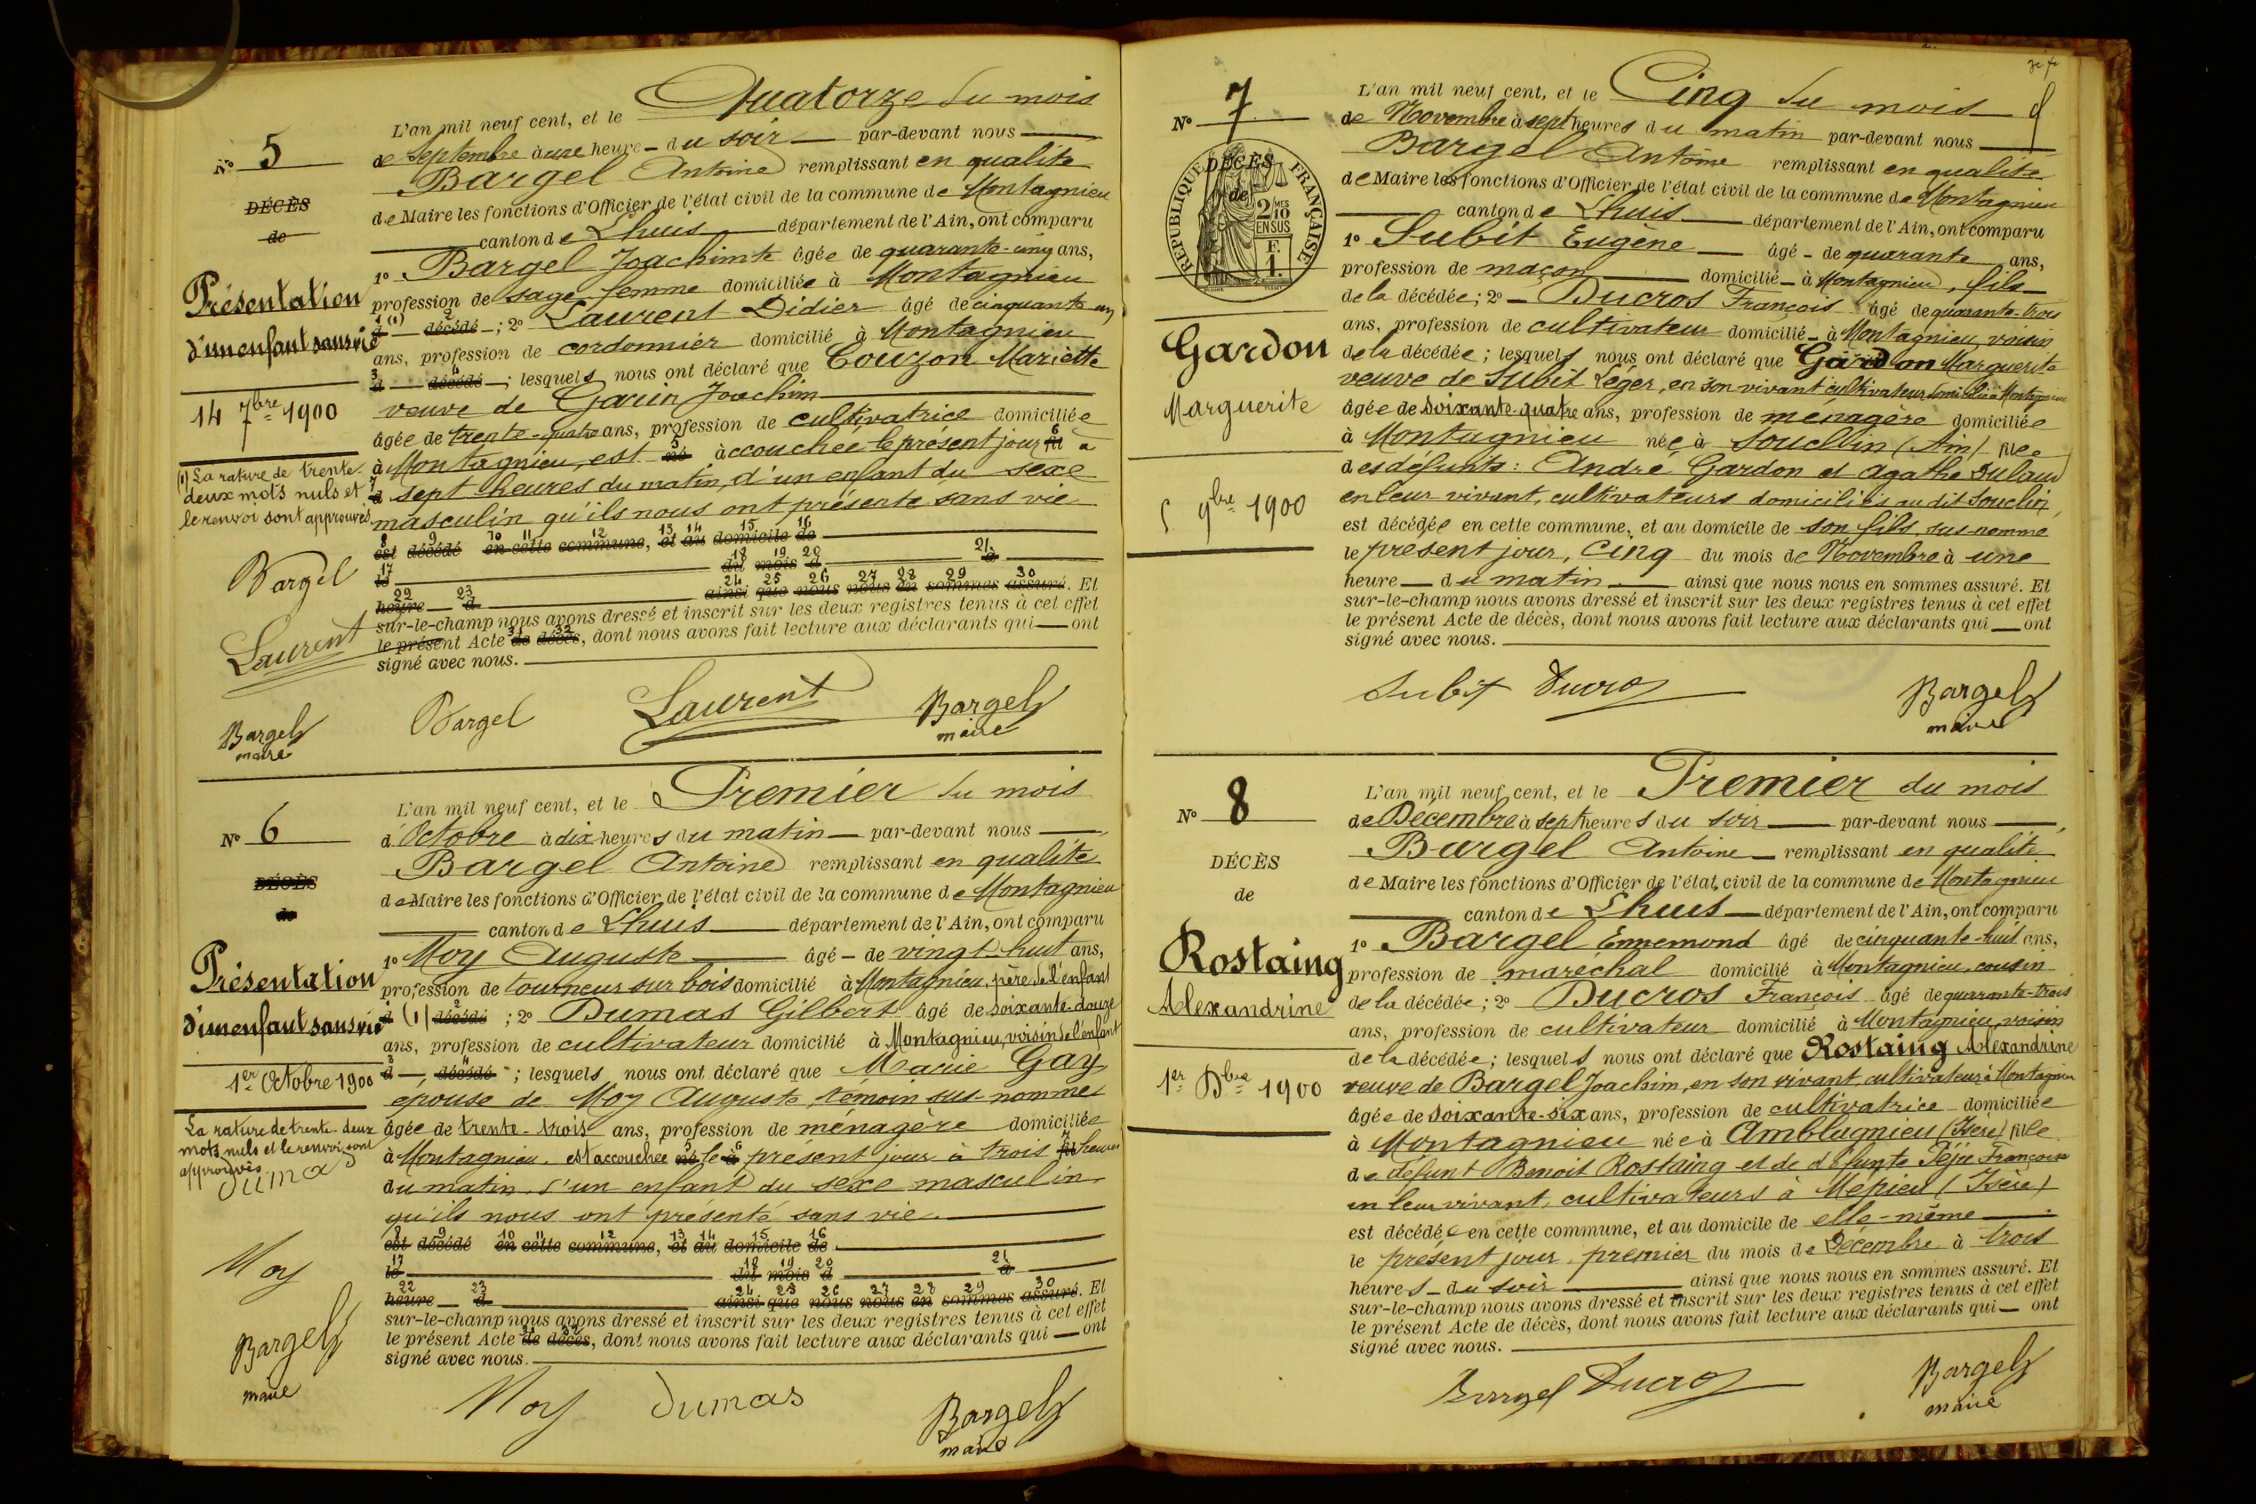 Nº 5
DÉCÈS
de
Présentation
d'un enfant sans vie
14 7bre 1900
(1) La rature de trente-
deux mots nuls et
le renvoi sont approuvés
Bargel
Laurent
Bargel
maire
L'an mil neuf cent, et le Quatorze du mois
de Septembre à une heure - du soir — par-devant nous —
Bargel Antoine remplissant en qualité
de Maire les fonctions d'Officier de l'état civil de la commune de Montagnieu
— canton de Lhuis — département de l'Ain, ont comparu
1º Bargel Joachimte âgée de quarante-cinq ans,
profession de sage-femme domiciliée à Montagnieu
1 (1) 2
d — décédé — ; 2º Laurent Didier âgé de cinquante un
ans, profession de cordonnier domicilié à Montagnieu
3 4
d — décédé — ; lesquels nous ont déclaré que Couzon Mariette
veuve de Garin Joachim —
âgée de trente-quatre ans, profession de cultivatrice domiciliée
à Montagnieu, est né 5 accouchée le présent jour fil 6 à
7 d sept heures du matin, d'un enfant du sexe
masculin qu'ils nous ont présenté sans vie
8 9 10 11 12 13 14 15 16
est décédé en cette commune, et au domicile de —
17 18 19 20 21
le — du mois d — à —
22 23 24 25 26 27 28 29 30
heure — d — ainsi que nous nous en sommes assuré. Et
sur-le-champ nous avons dressé et inscrit sur les deux registres tenus à cet effet
31 32
le présent Acte de décès, dont nous avons fait lecture aux déclarants qui — ont
signé avec nous. —
Bargel Laurent Bargel
maire
Nº 6
DÉCÈS
de
Présentation
d'un enfant sans vie
1er Octobre 1900
La rature de trente-deux
mots nuls et le renvoi sont
approuvés
Dumas
Moy
Bargel
maire
L'an mil neuf cent, et le Premier du mois
d'Octobre à dix heures du matin — par-devant nous —
Bargel Antoine remplissant en qualité
de Maire les fonctions d'Officier de l'état civil de la commune de Montagnieu
— canton de Lhuis — département de l'Ain, ont comparu
1º Moy Auguste — âgé - de vingt-huit ans,
profession de tourneur sur bois domicilié à Montagnieu, père de l'enfant
2
d (1) décédé ; 2º Dumas Gilbert âgé de soixante-douze
ans, profession de cultivateur domicilié à Montagnieu, voisin de l'enfant
3 4
d —, décédé - ; lesquels nous ont déclaré que Marie Gay
épouse de Moy Auguste, témoin sus-nommé
âgée de trente-trois ans, profession de ménagère domiciliée
à Montagnieu, est accouchée né 5 le à 6 présent jour à trois fil heures
du matin, d'un enfant du sexe masculin
qu'ils nous ont présenté sans vie. —
8 9 10 11 12 13 14 15 16
est décédé en cette commune, et au domicile de —
17 18 19 20 21
le — du mois d — à —
22 23 24 25 26 27 28 29 30
heure — d — ainsi que nous nous en sommes assuré. Et
sur-le-champ nous avons dressé et inscrit sur les deux registres tenus à cet effet
31 32
le présent Acte de décès, dont nous avons fait lecture aux déclarants qui — ont
signé avec nous. —
Moy Dumas Bargel
maire
Nº 7
RÉPUBLIQUE FRANÇAISE
DÉCÈS
de
2 MES
10
EN SUS
F.
1.
Gardon
Marguerite
5 9bre 1900
L'an mil neuf cent, et le Cinq du mois —
de Novembre à sept heures du matin par-devant nous —
Bargel Antoine remplissant en qualité
de Maire les fonctions d'Officier de l'état civil de la commune de Montagnieu
— canton de Lhuis — département de l'Ain, ont comparu
1º Subit Eugène — âgé - de quarante ans,
profession de maçon — domicilié - à Montagnieu, fils —
de la décédée ; 2º — Ducros François âgé de quarante-trois
ans, profession de cultivateur domicilié - à Montagnieu, voisin
de la décédée ; lesquels nous ont déclaré que Gardon Marguerite
veuve de Subit Léger, en son vivant cultivateur domicilié à Montagnieu
âgée de soixante-quatre ans, profession de ménagère domiciliée
à Montagnieu née à Souclin (Ain) fille
des défunts : André Gardon et Agathe Dulaud
en leur vivant, cultivateurs domiciliés au dit Souclin,
est décédée en cette commune, et au domicile de son fils, sus-nommé
le présent jour, Cinq du mois de Novembre à une
heure — du matin — ainsi que nous nous en sommes assuré. Et
sur-le-champ nous avons dressé et inscrit sur les deux registres tenus à cet effet
le présent Acte de décès, dont nous avons fait lecture aux déclarants qui — ont
signé avec nous. —
Subit Ducros Bargel
maire
Nº 8
DÉCÈS
de
Rostaing
Alexandrine
1er Dbre 1900
L'an mil neuf cent, et le Premier du mois
de Décembre à sept heures du soir — par-devant nous —,
Bargel Antoine — remplissant en qualité
de Maire les fonctions d'Officier de l'état civil de la commune de Montagnieu
— canton de Lhuis — département de l'Ain, ont comparu
1º Bargel Ennemond âgé de cinquante-huit ans,
profession de maréchal domicilié à Montagnieu, cousin
de la décédée ; 2º Ducros François âgé de quarante-trois
ans, profession de cultivateur domicilié à Montagnieu, voisin
de la décédée ; lesquels nous ont déclaré que Rostaing Alexandrine
veuve de Bargel Joachim, en son vivant, cultivateur à Montagnieu
âgée de soixante-six ans, profession de cultivatrice domiciliée
à Montagnieu née à Amblagnieu (Isère) fille
de défunt Benoit Rostaing et de défunte Féjie Françoise
en leur vivant, cultivateurs à Mépieu (Isère)
est décédée en cette commune, et au domicile de elle-même —
le présent jour, premier du mois de Décembre à trois
heures - du soir — ainsi que nous nous en sommes assuré. Et
sur-le-champ nous avons dressé et inscrit sur les deux registres tenus à cet effet
le présent Acte de décès, dont nous avons fait lecture aux déclarants qui — ont
signé avec nous. —
Bargel Ducros Bargel
maire